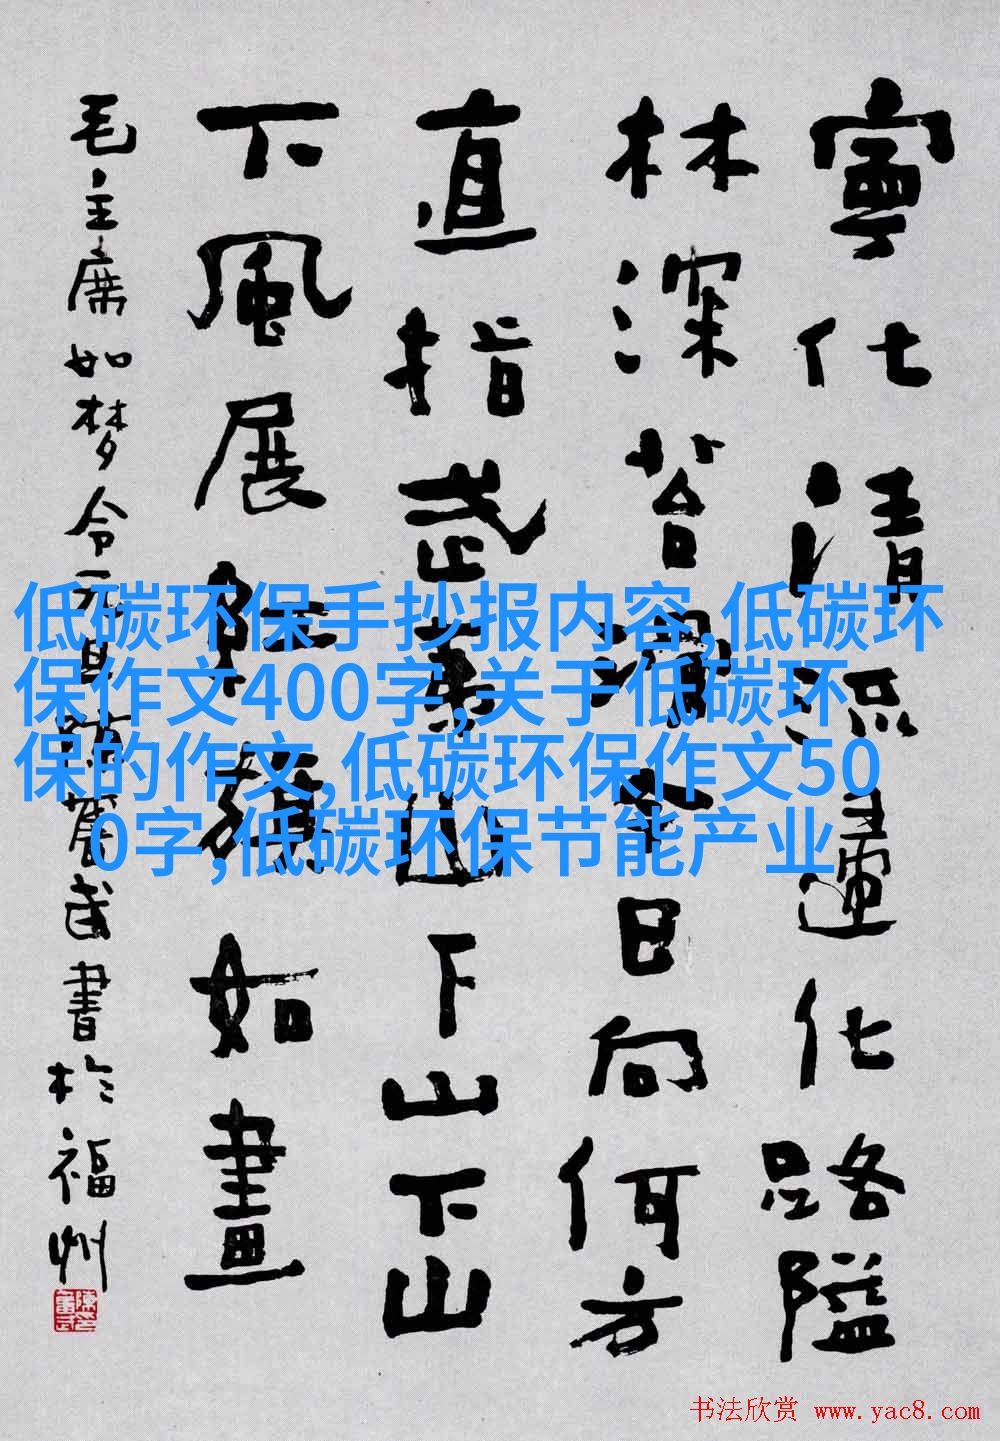 寧化清流歸化路隘
林深苔滑今日向何方
直指武夷山下山下山
下風展紅旗如畫
毛主席如梦令元旦陳奮武書於福州
低碳环保手抄报内容,低碳环
保作文400字,关于低碳环
保的作文,低碳环保作文50
0字,低碳环保节能产业
书法欣赏 www.yac8.com